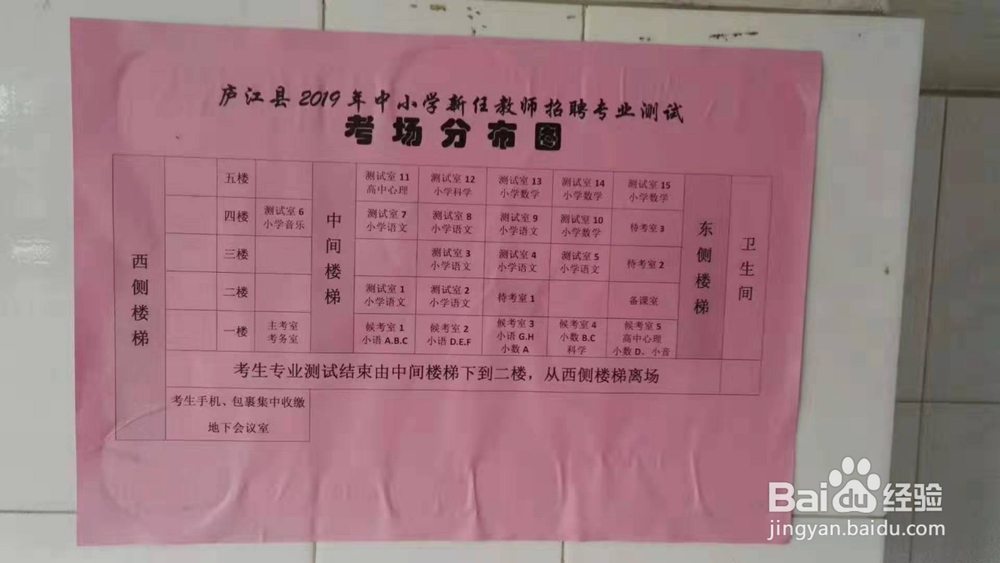 庐江县2019年中小学新任教师招聘专业测试
考场分布图
西侧楼梯
五楼
中间楼梯
测试室 11
高中心理
测试室 12
小学科学
测试室 13
小学数学
测试室 14
小学数学
测试室 15
小学数学
东侧楼梯
卫生间
四楼
测试室 6
小学音乐
测试室 7
小学语文
测试室 8
小学语文
测试室 9
小学语文
测试室 10
小学数学
待考室 3
三楼
测试室 3
小学语文
测试室 4
小学语文
测试室 5
小学语文
待考室 2
二楼
测试室 1
小学语文
测试室 2
小学语文
待考室 1
备课室
一楼
主考室
考务室
候考室 1
小语 A.B.C
候考室 2
小语 D.E.F
候考室 3
小语 G.H
小数 A
候考室 4
小数 B.C
科学
候考室 5
高中心理
小数 D、小音
考生专业测试结束由中间楼梯下到二楼，从西侧楼梯离场
考生手机、包裹集中收缴
地下会议室
Baidu 经验
jingyan.baidu.com